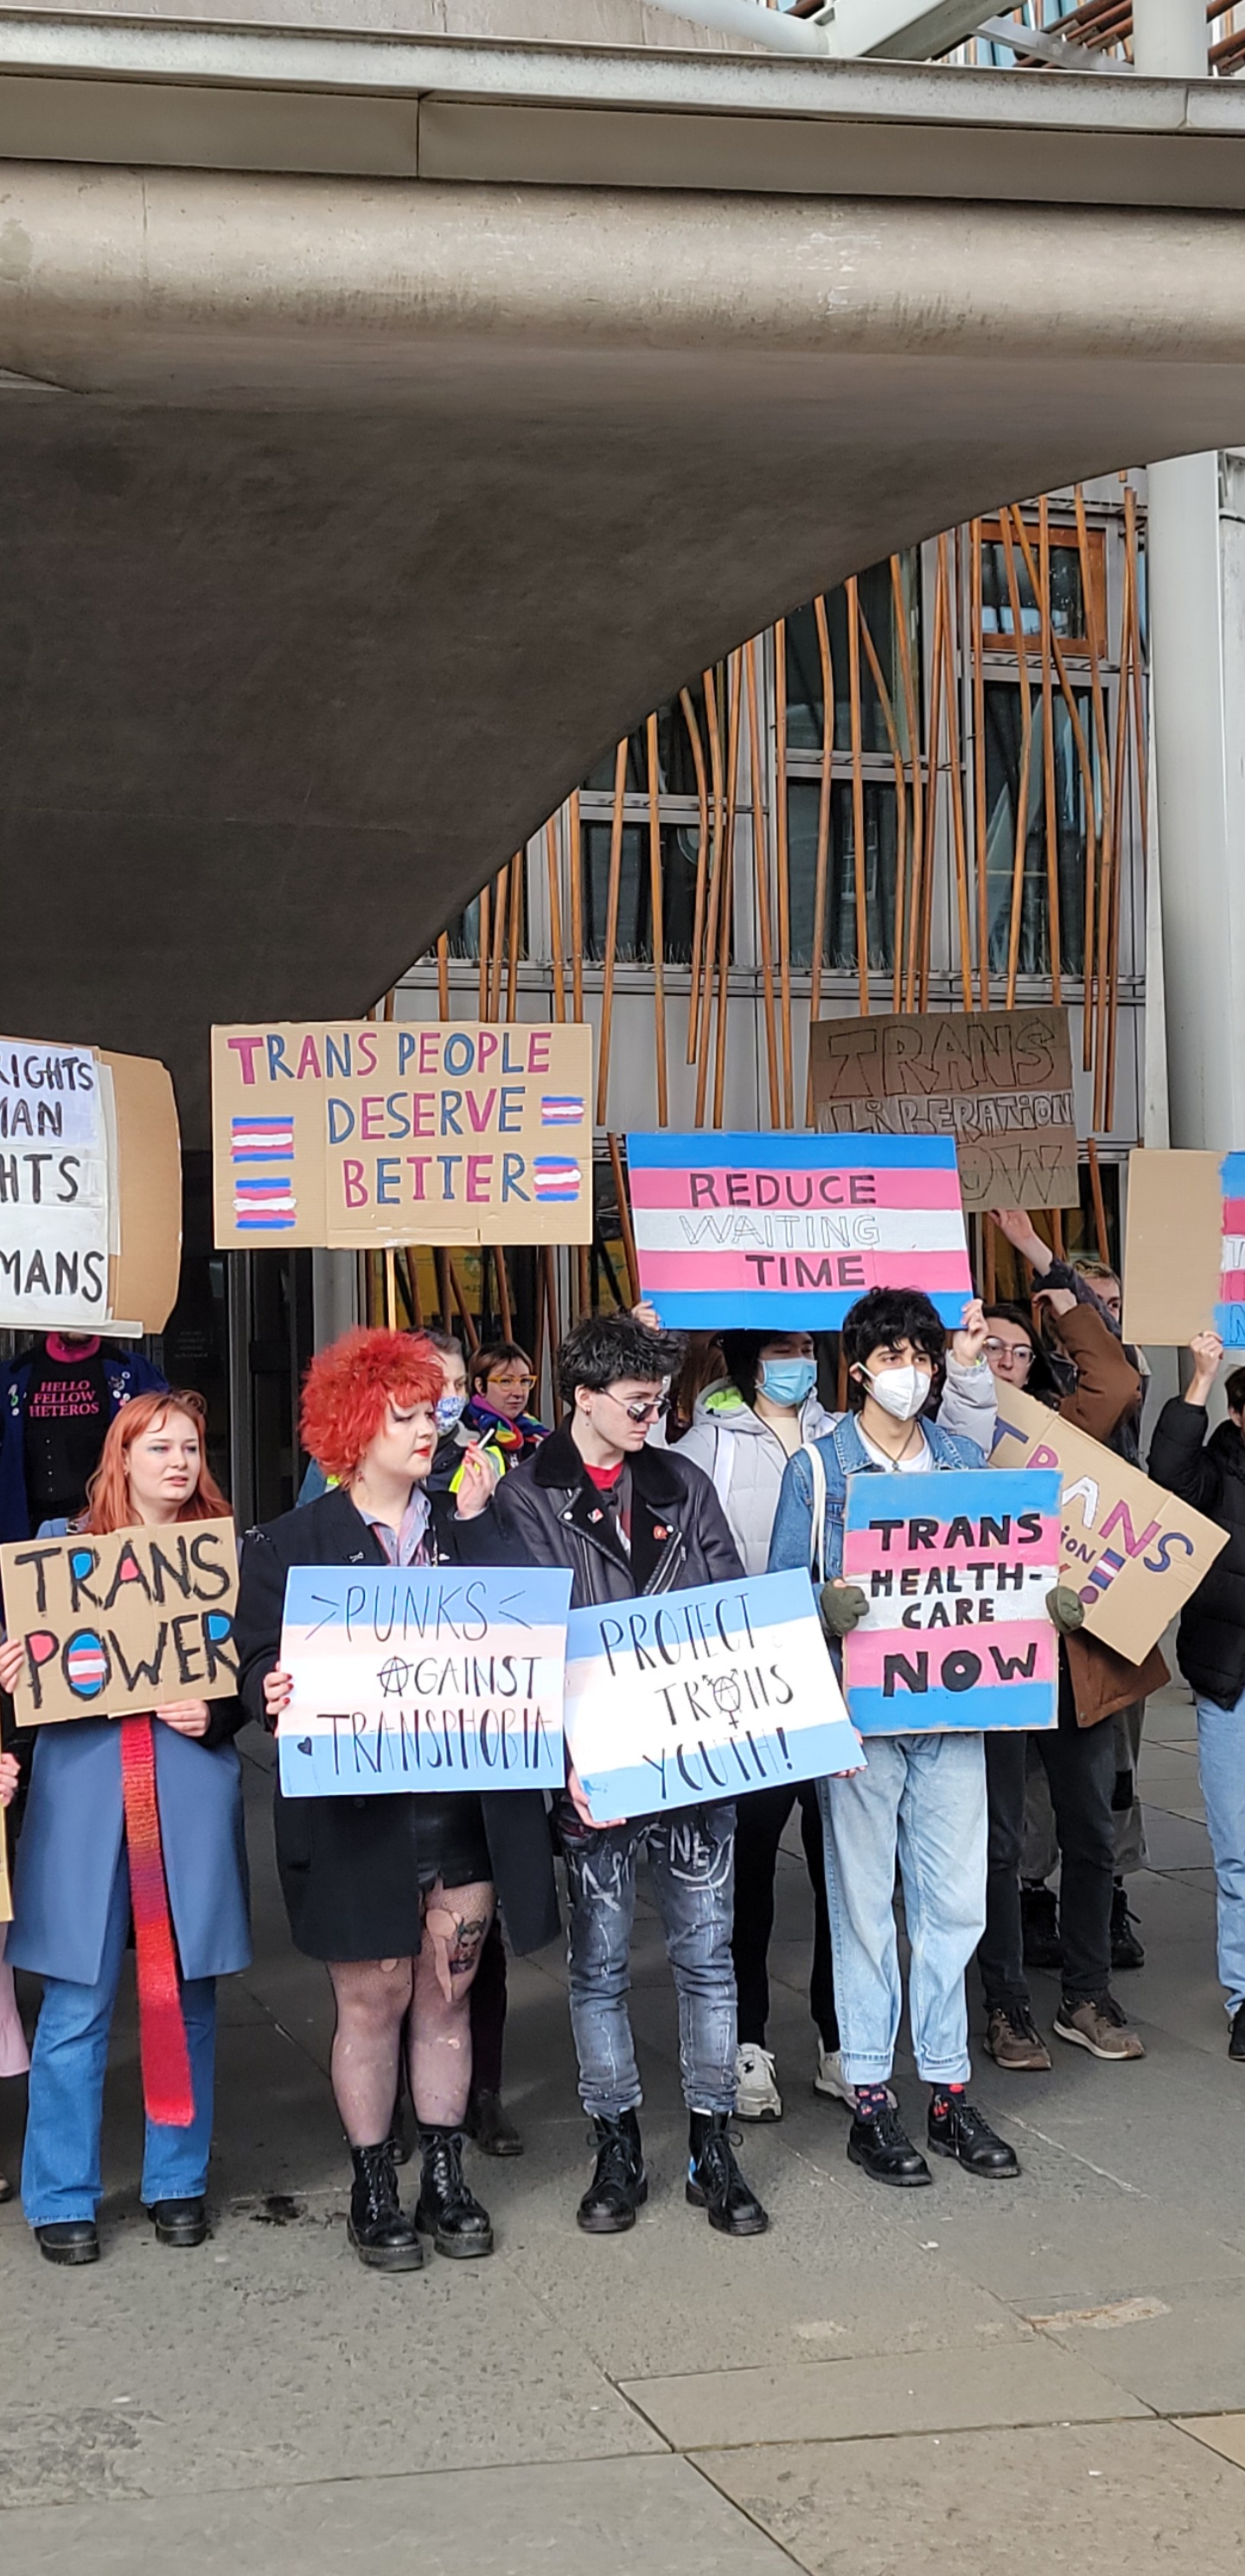 RIGHTS
HTS
TRANS PEOPLE
DESERVE
BETTER
TRANS
LIBERATION
REDUCE
WAITING
TIME
HELLO
FELLOW
HETEROS
TRANS
POWER
PUNKS
AGAINST
TRANSPHOBIA
PROTECT
TRANS
YOUTH!
TRANS
HEALTH-
CARE
NOW
TRANS